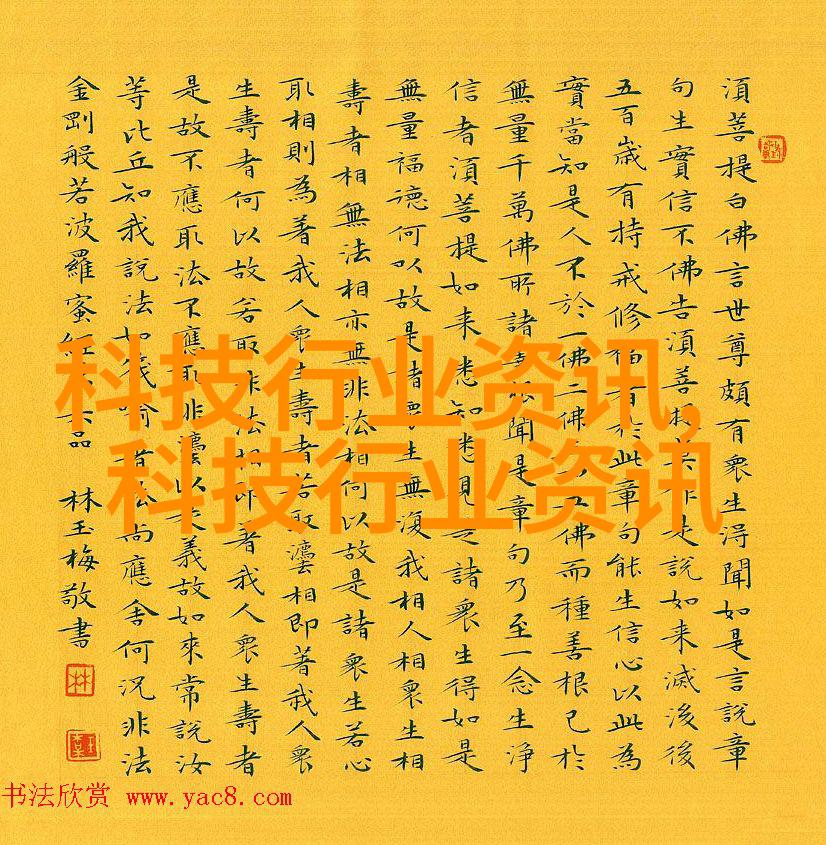 湏菩提白佛言世尊頗有衆生得聞如是言說章
句生實信不佛告湏菩提作是說如来滅後後
五百嵗有持戒修福者於此章句能生信心以此為
實當知是人不於一佛二佛五佛而種善根已於
無量千萬佛所諸善根聞是章句乃至一念生淨
信者湏菩提如来悉知悉見是諸衆生得如是
無量福德何以故是諸衆生無復我相人相衆生相
壽者相無法相亦無非法相何以故是諸衆生若心
取相則為著我人衆生壽者若取灋相即著我人衆
生壽者何以故若取非法相即著我人衆生壽者
是故不應取法不應取非灋以是義故如來常說汝
等比丘知我說法如筏喻者法尚應舍何況非法
金剛般若波羅蜜經品 林玉梅敬書
林
科技行业资讯,
科技行业资讯
书法欣赏 www.yac8.com